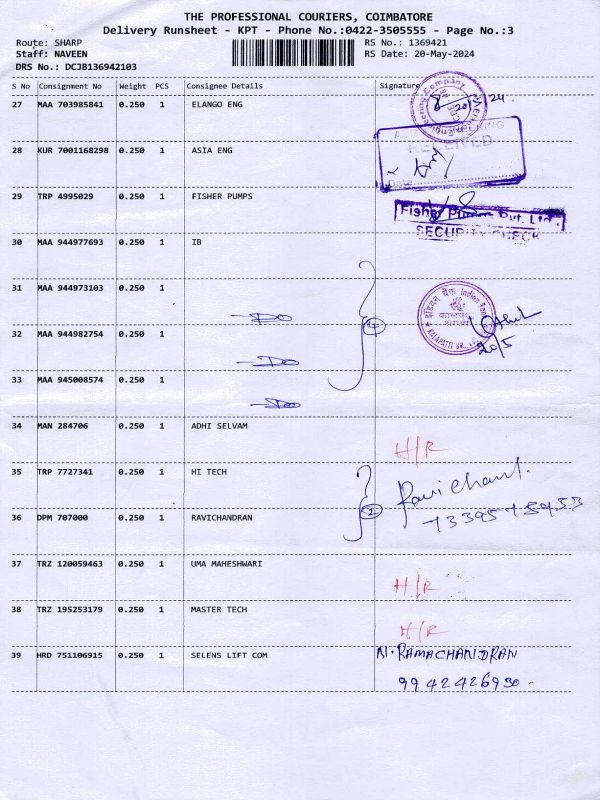 THE PROFESSIONAL COURIERS, COIMBATORE
Delivery Runsheet - KPT - Phone No.:0422-3505555 - Page No.:3
Route: SHARP RS No.: 1369421
Staff: NAVEEN RS Date: 20-May-2024
DRS No.: DCJB136942103
S No Consignment No Weight PCS Consignee Details Signature
27 MAA 703985841 0.250 1 ELANGO ENG
28 KUR 7001168298 0.250 1 ASIA ENG
RECEIVED
Date
29 TRP 4995029 0.250 1 FISHER PUMPS
Fisher Pumps Pvt. Ltd.
SECURITY CHECK
30 MAA 944977693 0.250 1 IB
31 MAA 944973103 0.250 1
Do
इंडियन बैंक Indian Bank
KALAPATTI BR.
20/5
4
32 MAA 944982754 0.250 1
Do
33 MAA 945008574 0.250 1
Do
34 MAN 284706 0.250 1 ADHI SELVAM
H/R
35 TRP 7727341 0.250 1 HI TECH
Ravichand.
2
36 DPM 707000 0.250 1 RAVICHANDRAN
37 TRZ 120059463 0.250 1 UMA MAHESHWARI
H/R
38 TRZ 195253179 0.250 1 MASTER TECH
H/R
39 HRD 751106915 0.250 1 SELENS LIFT COM
N. RAMACHANDRAN
9942426930